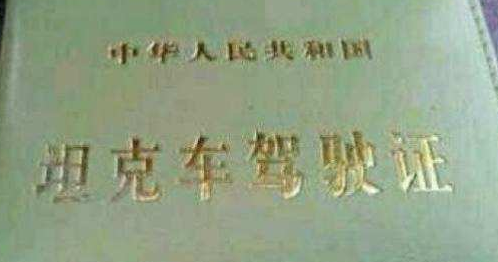 中华人民共和国
坦克车驾驶证